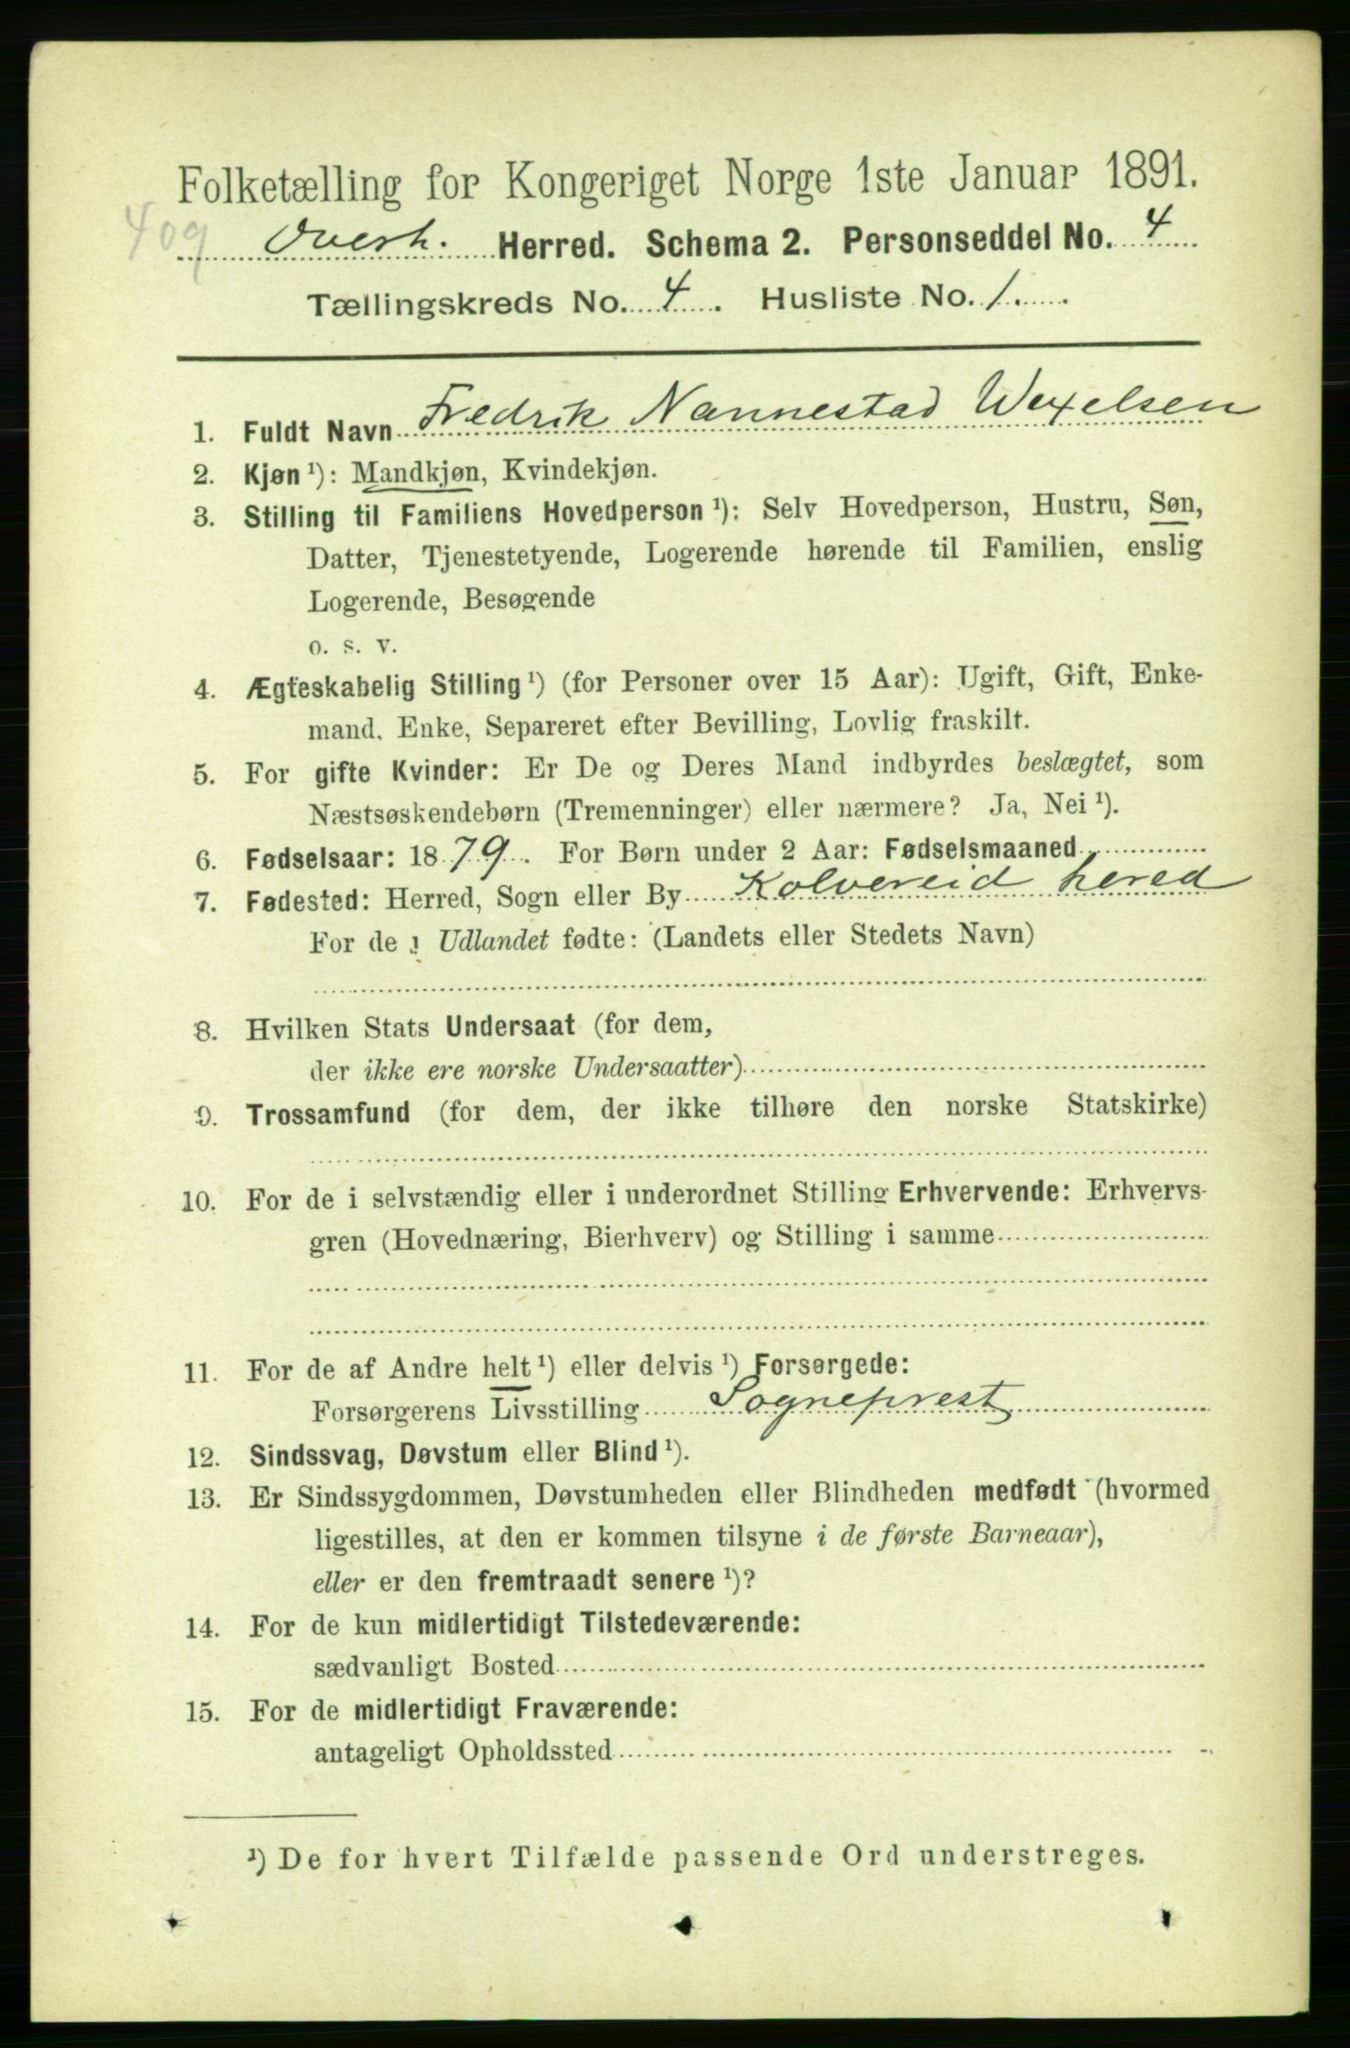 Folketælling for Kongeriget Norge 1ste Januar 1891.
409
Overh. Herred. Schema 2. Personseddel No. 4
Tællingskreds No. 4. Husliste No. 1.
1. Fuldt Navn Fredrik Nannestad Wexelsen
2. Kjøn ¹): Mandkjøn, Kvindekjøn.
3. Stilling til Familiens Hovedperson ¹): Selv Hovedperson, Hustru, Søn,
Datter, Tjenestetyende, Logerende hørende til Familien, enslig
Logerende, Besøgende
o. s. v.
4. Ægteskabelig Stilling ¹) (for Personer over 15 Aar): Ugift, Gift, Enke-
mand, Enke, Separeret efter Bevilling, Lovlig fraskilt.
5. For gifte Kvinder: Er De og Deres Mand indbyrdes beslægtet, som
Næstsøskendebørn (Tremenninger) eller nærmere? Ja, Nei ¹).
6. Fødselsaar: 1879. For Børn under 2 Aar: Fødselsmaaned
7. Fødested: Herred, Sogn eller By Kolvereid hered
For de i Udlandet fødte: (Landets eller Stedets Navn)
8. Hvilken Stats Undersaat (for dem,
der ikke ere norske Undersaatter)
9. Trossamfund (for dem, der ikke tilhøre den norske Statskirke)
10. For de i selvstændig eller i underordnet Stilling Erhvervende: Erhvervs-
gren (Hovednæring, Bierhverv) og Stilling i samme
11. For de af Andre helt ¹) eller delvis ¹) Forsørgede:
Forsørgerens Livsstilling Sogneprest
12. Sindssvag, Døvstum eller Blind ¹).
13. Er Sindssygdommen, Døvstumheden eller Blindheden medfødt (hvormed
ligestilles, at den er kommen tilsyne i de første Barneaar),
eller er den fremtraadt senere ¹)?
14. For de kun midlertidigt Tilstedeværende:
sædvanligt Bosted
15. For de midlertidigt Fraværende:
antageligt Opholdssted
¹) De for hvert Tilfælde passende Ord understreges.